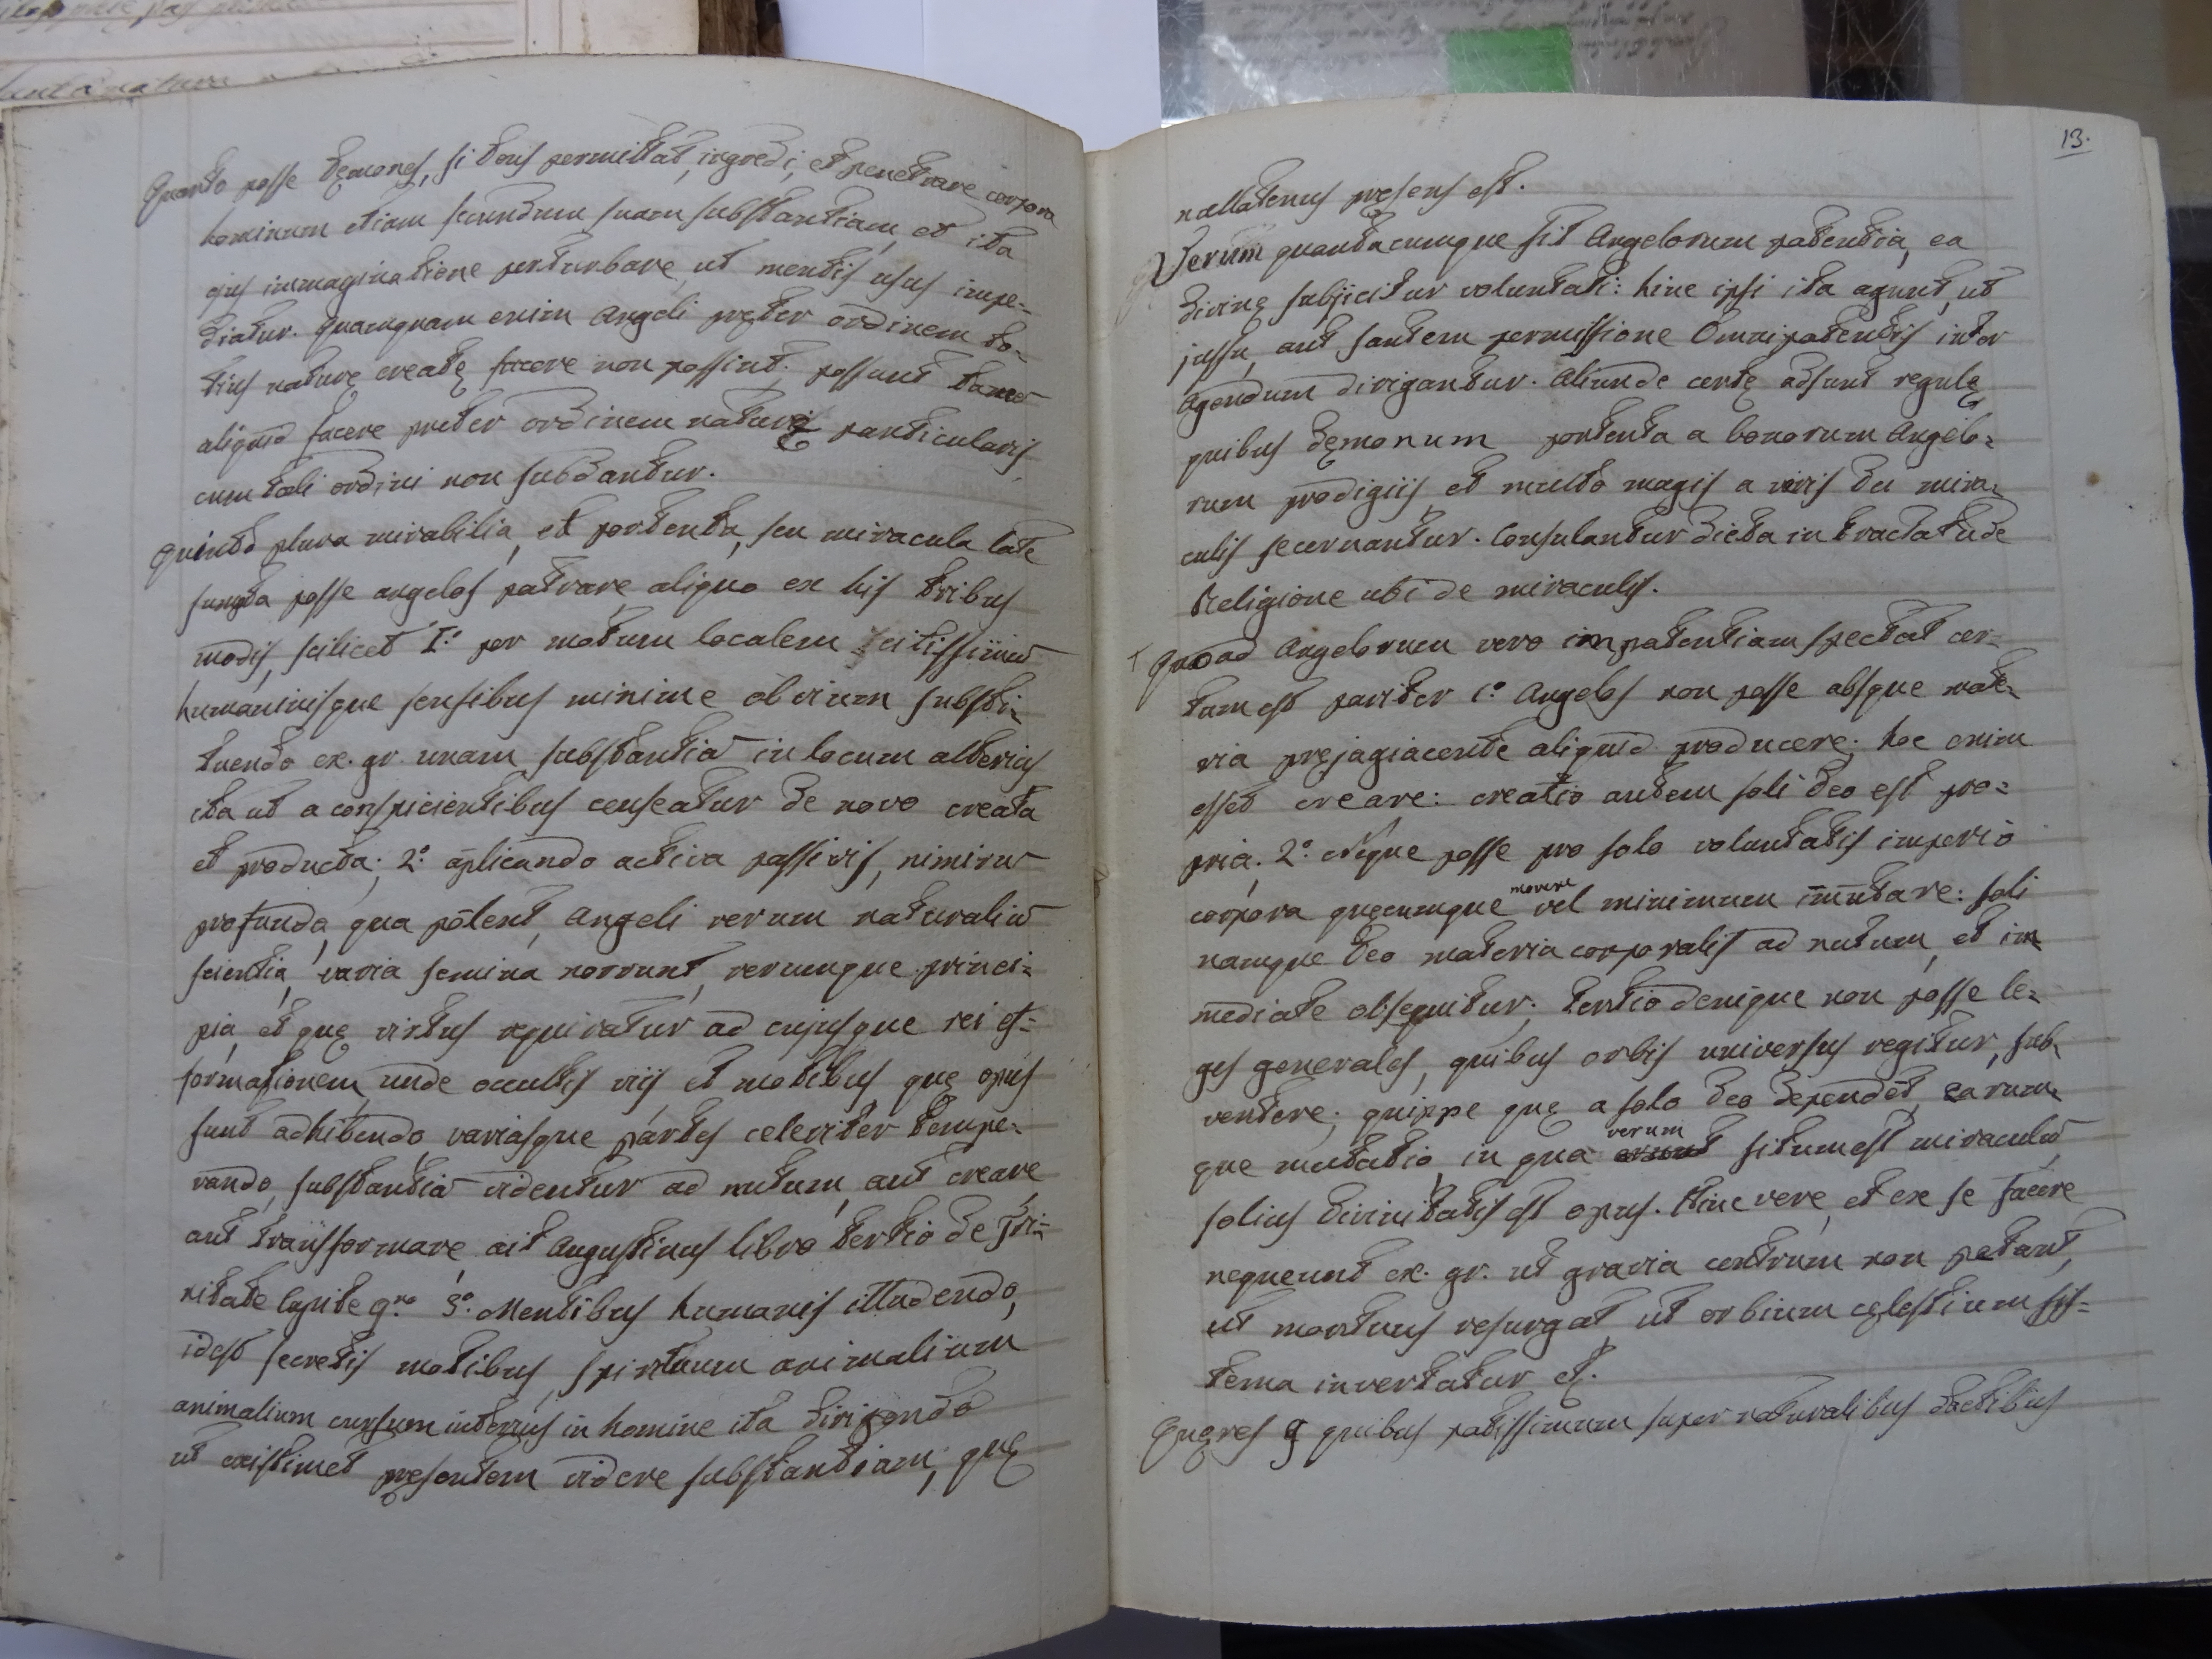 Quarto posse dęmones, si Deus permittat, ingredi, et penetrare corpora
hominum etiam secundum suam substantiam, et ita
ejus immaginatione perturbare, ut mentis usus impe=
diatur. quamquam enim Angeli pręter ordinem to=
tius naturę creatę facere non possint; possunt tamē
aliquid facere preter ordinem naturę particularis
cum tali ordini non subdantur.
Quinto plura mirabilia, et portenta, seu miracula late
sumpta posse angelos patrare aliquo ex his tribus
modis, scilicet I.º per motum localem citissimū
humanisque sensibus minime obvium substi=
tuendo ex. gr. unam substantiā in locum alterius
ita ut a conspicientibus censeatur de novo creata
et producta; 2.º aplicando activa passivis, nimirū
profunda, qua pollent, Angeli rerum naturaliū
scientia, varia semina norrunt, rerumque princi=
pia, et quę virtus requiratur ad cujusque rei ef=
formationem, unde occultis viis, et motibus quę opus
sunt adhibendo, variasque partes celeriter tempe=
rando, substantiā videntur ad nutum, aut creare,
aut transformare, ait Augustinus libro tertio de Tri=
nitate Capite 9.no 3.º Mentibus humanis illudendo,
idest secretis motibus, spirituum animalium
animalium cursum interius in homine ita dirigendo
ut existimet pręsentem videre substantiam, quę
13.
nullatenus pręsens est.
Verum quantacumque sit Angelorum potentia, ea
divinę subjicitur voluntati: hinc ipsi ita agunt, ut
jussu, aut saltem permissione Omnipotentis inter
Agendum dirigantur. Aliunde certę adsunt regulę
quibus dęmonum portenta a bonorum Angelo=
rum prodigiis et multo magis a veris Dei mira=
culis secernantur. Consulantur dicta in tractatu de
Religione ubi de miraculis.
Quoad Angelorum vero impotentiam spectat cer=
tum est pariter 1.º Angelos non posse absque mate=
ria pręjagiacente aliquid producere; hoc enim
esset creare: creatio autem soli Deo est pro=
pria. 2.º Neque posse pro solo voluntatis imperio
corpora quęcumque movere vel minimum im̄utare: soli
namque Deo materia corporalis ad nutum, et im
mediate obsequitur; tertio denique non posse le=
ges generales, quibus orbis universus regitur, sub=
vertere; quippe quę a solo Deo dependēt, earum=
que mutatio, in qua verum situm est miraculū,
solius Divinitatis est opus. Hinc vere, et ex se facere
nequeunt ex. gr. ut gravia centrum non petant,
ut mortuus resurgat, ut orbium cęlestium sys=
tema invertatur etc.
Quęres 9 quibus potissimum supernaturalibus dactibus